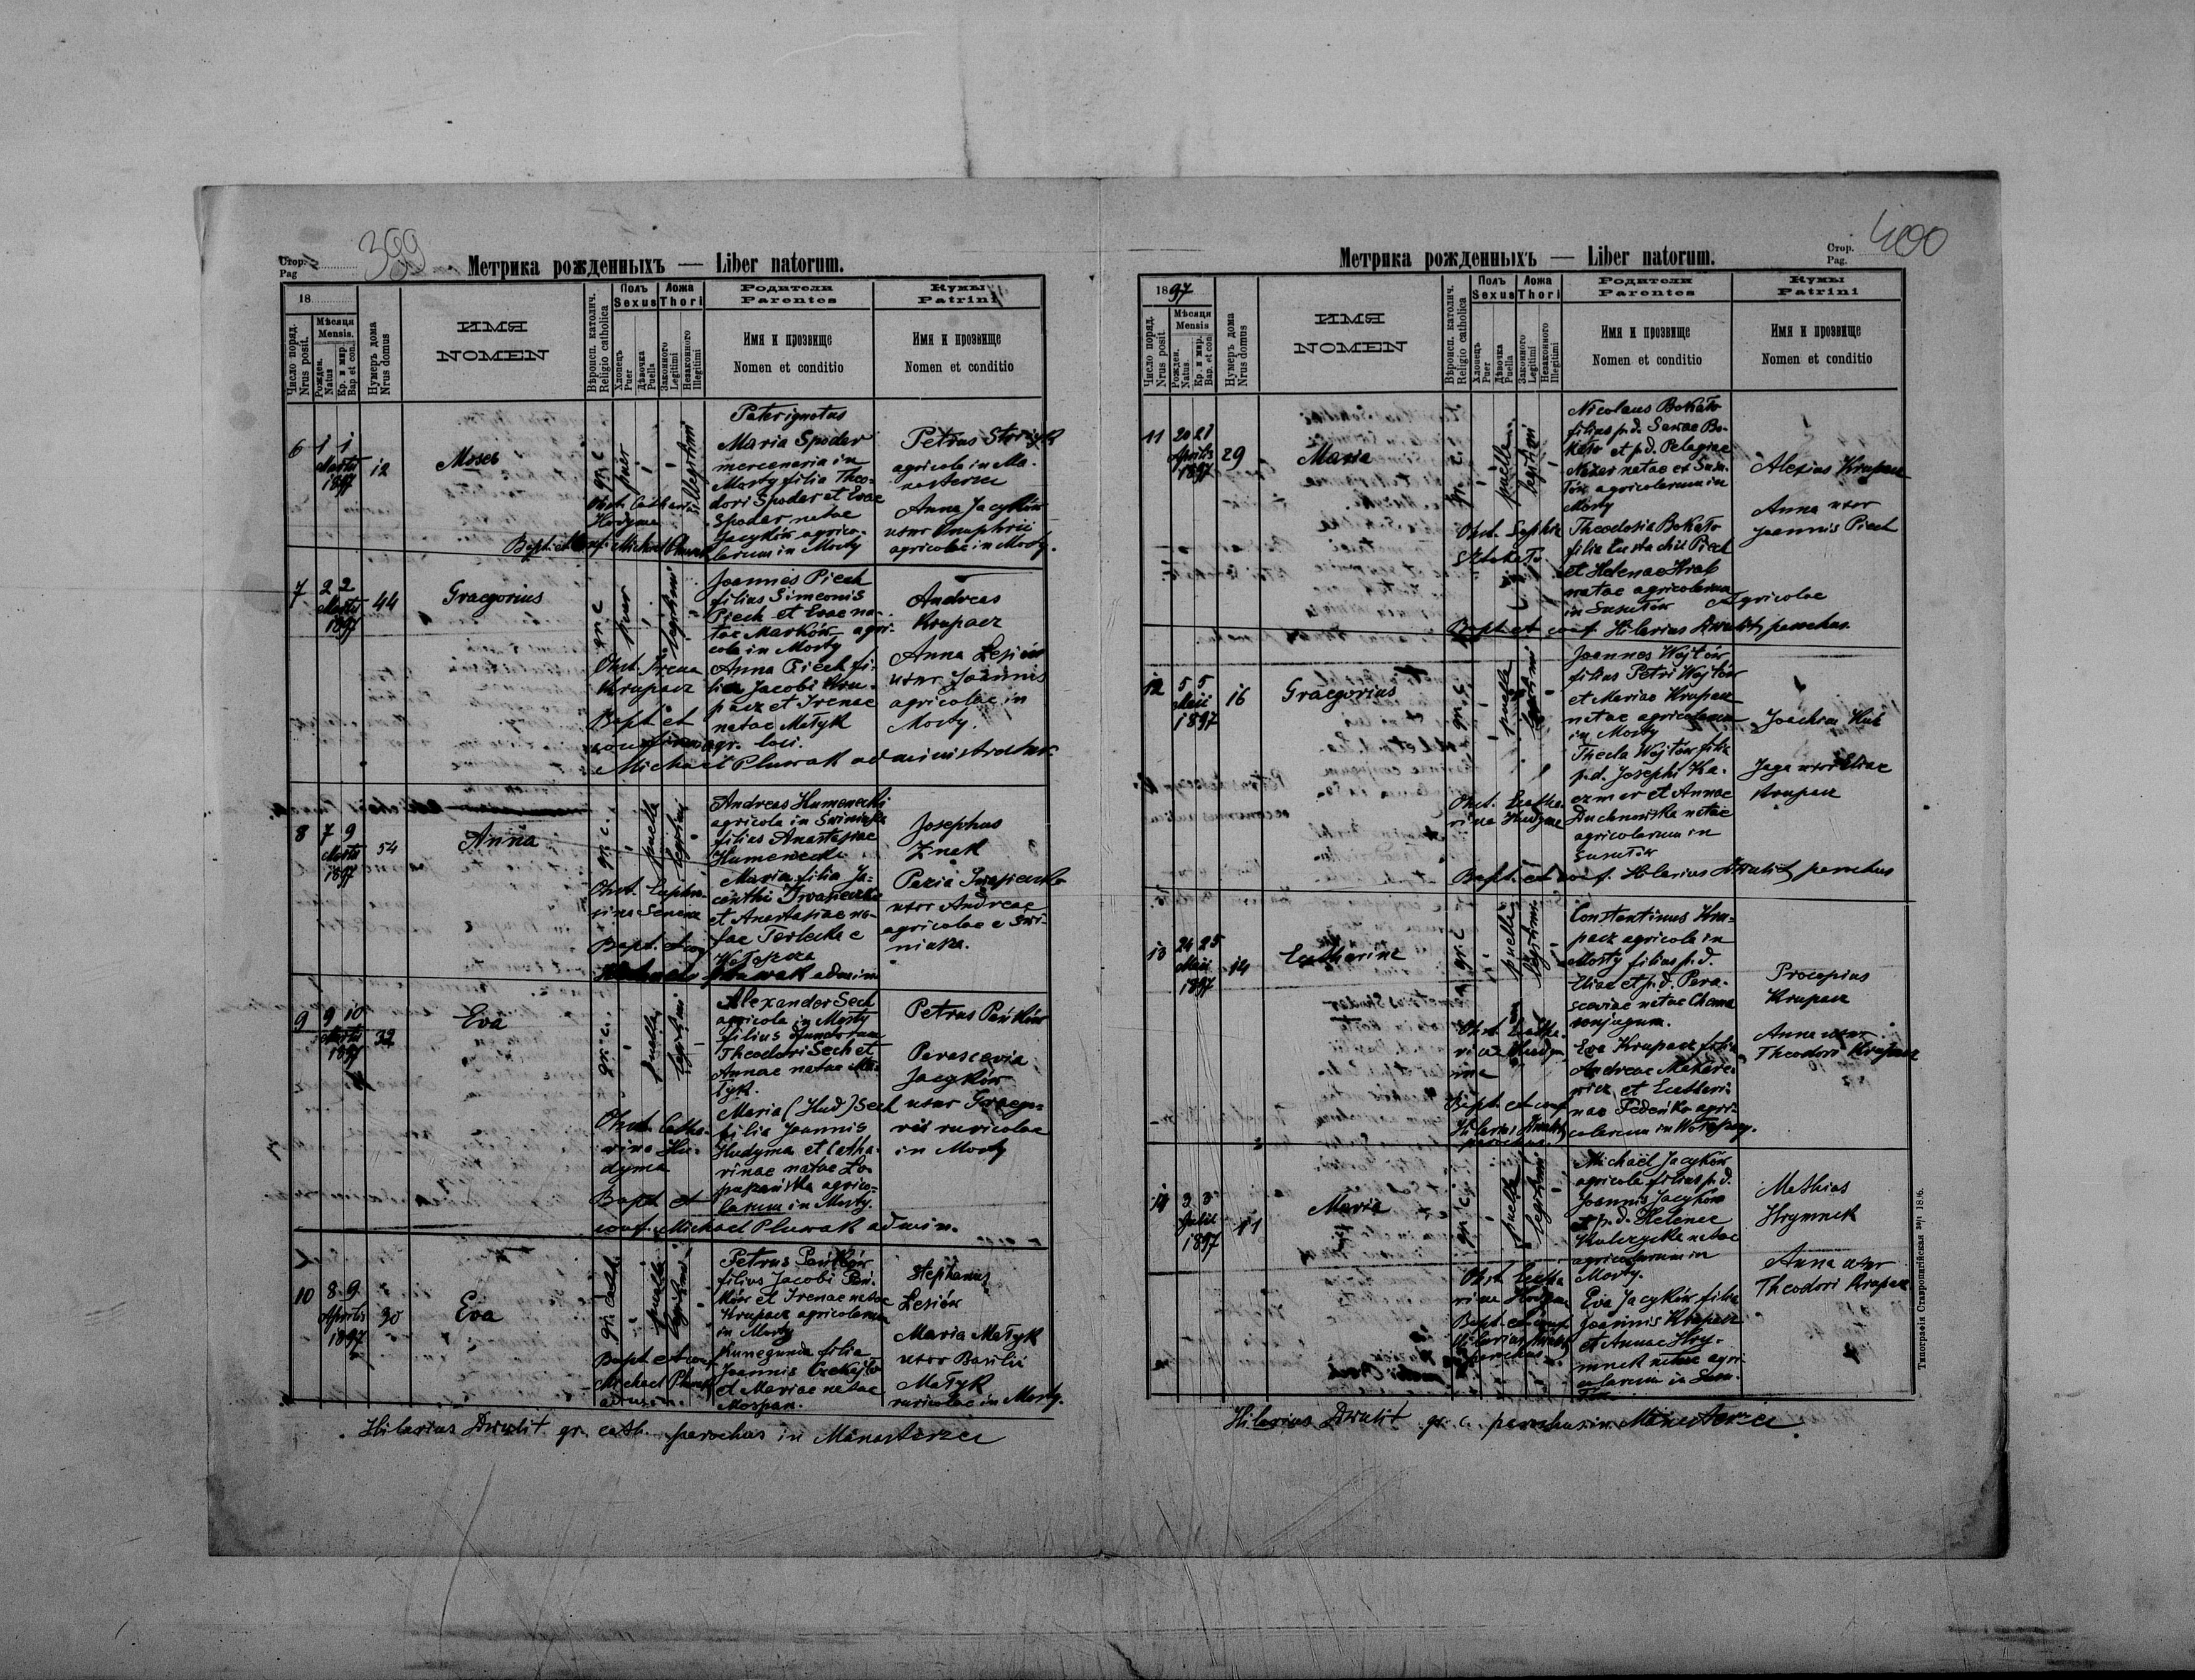 Стор.
Pag
399
Метрика рожденныхъ — Liber natorum.
18
Число поряд.
Nrus posit.
Мѣсяця
Mensis.
Рожден.
Natus
Кр. и мир.
Bap. et con.
Нумеръ дома
Nrus domus
ИМЯ
NOMEN
Вѣроисп. католич.
Religio catholica
Полъ
Sexus
Хлопецъ
Puer
Дѣвочка
Puella
Ложа
Thori
Законного
Legitimi
Незаконного
Illegitimi
Родители
Parentes
Имя и прозвище
Nomen et conditio
Кумы
Patrini
Имя и прозвище
Nomen et conditio
6
1 1
Martii
1897
12
Moses
gr. c
puer
illegitimi
Obst. Catharina
Hudyma
Pater ignotus
Maria Spodar
mercenaria in
Mosty filia Theo-
dori Spodar et Evae
Spodar natae
Jacyków agrico-
larum in Mosty
Petrus
agricola in Ma-
nasterzec
Anna Jacyków
uxor Onuphrii
agricolae in Mosty.
Bapt. et conf. Michael Pluwak
7
2 2
Martii
1897
44
Graegorius
gr. c
puer
legitimi
Obst. Irena
Krupacz
Bapt. et
Joannes Piech
filius Simeonis
Piech et Evae na-
tae Marków agri-
cola in Mosty
Anna Piech fi-
lia Jacobi Kru-
pacz et Irenae
natae Matyk
agr. loci.
Andreas
Krupacz
Anna Lesiów
uxor Joannis
agricolae in
Mosty.
Michael Pluwak administrator
8
7 9
Martii
1897
54
Anna
gr. c.
puella
legitimi
Obst. Euphro-
sina
Bapt. et conf
Andreas Humenecki
agricola in
filius Anastasiae
Humenecki
Maria filia Ja-
cinthi
et Anastasiae na-
tae Terlecka e
Josephus
Znak
uxor Andreae
agricolae e
Michael Pluwak admin
9
9 10
Martii
1897
32
Eva
gr. c.
puella
legitimi
Obst. Catha-
rina Hu-
dyma
Bapt et
Alexander Sech
agricola in Mosty
filius
Theodori Sech et
Annae natae Ma-
tyk.
Maria (Hud) Sech
filia Joannis
Hudyma et Catha-
rinae natae Lo-
puszańska agrico-
larum in Mosty.
Petrus Pańków
Parascevia
Jacyków
uxor Graego-
rii ruricolae
in Mosty
conf. Michael Pluwak admin.
10
8 9
Aprilis
1897
30
Eva
gr. cath
puella
legitimi
Bapt et conf
Michael Pluwak
admin.
Petrus Pańków
filius Jacobi Pań-
ków et Irenae natae
Krupacz agricolarum
in Mosty
Kunegunda filia
Joannis
et Mariae natae
Mospan.
Stephanus
Lesiów
Maria Matyk
uxor Basilii
Matyk
ruricolae in Mosty.
Hilarius Drulit gr. cath. parochus in Manasterzec
Стор.
Pag.
400
Метрика рожденныхъ — Liber natorum.
1897
Число поряд.
Nrus posit.
Мѣсяця
Mensis
Рожден.
Natus.
Кр. и мир.
Bap. et con.
Нумеръ дома
Nrus domus
ИМЯ
NOMEN
Вѣроисп. католич.
Religio catholica
Полъ
Sexus
Хлопецъ
Puer
Дѣвочка
Puella
Ложа
Thori
Законного
Legitimi
Незаконного
Illegitimi
Родители
Parentes
Имя и прозвище
Nomen et conditio
Кумы
Patrini
Имя и прозвище
Nomen et conditio
11
20 21
Aprilis
1897
29
Maria
gr. c
puella
legitimi
Obst. Sophia
Nicolaus Bokało
filius p. d. Senae Bo-
kało et p. d. Pelagiae
natae ex Susu-
łów agricolarum in
Mosty
Theodosia Bokało
filia Eustachii Piech
et Helenae
natae agricolarum
in Susułów
Alexius Krupacz
Anna uxor
Joannis Piech
Agricolae
Bapt. et conf. Hilarius Drulit parochus.
12
5 5
Maii
1897
16
Graegorius
gr. c.
puella
legitimi
Obst. Eutha-
rina Hudyma
Joannes Wojtów
filius Petri Wojtów
et Mariae Krupacz
natae agricolarum
in Mosty
Thecla Wojtów filia
p. d. Josephi Ka-
czmar et Annae
Duchnowska natae
agricolarum in
Susułów
Joachim
Jaga uxor Eliae
Krupacz
Bapt. et conf. Hilarius Drulit parochus
13
24 25
Maii
1897
14
Eutharina
gr. c
puella
legitimi
Obst. Eutha-
rina Hudy-
ma
Bapt. et conf
Hilarius Drulit
parochus
Constantinus Kru-
pacz agricola in
Mosty filius p. d.
Eliae et p. d. Para-
sceviae natae Choma
conjugum.
Eva Krupacz filia
Andreae
et Euthari-
nae Fedeńko agri-
colarum in
Procopius
Krupacz
Anna uxor
Theodori Krupacz
14
2 3
Julii
1897
11
Maria
gr. c.
puella
legitimi
Obst. Eutha
rina Hudyma
Bapt. et conf
Hilarius Drulit
parochus
Michaël Jacyków
agricola filius p. d.
Joannis Jacyków
et p. d. Helenae
Kulczycka natae
agricolarum in
Mosty.
Eva Jacyków filia
Joannis Krupacz
et Annae Hry-
mnak natae agri-
colarum in Susu-
łów
Mathias
Hrymnak
Anna uxor
Theodori Krupacz
Hilarius Drulit gr. c. parochus in Manasterzec.
Типографія Ставропигійская 1896.